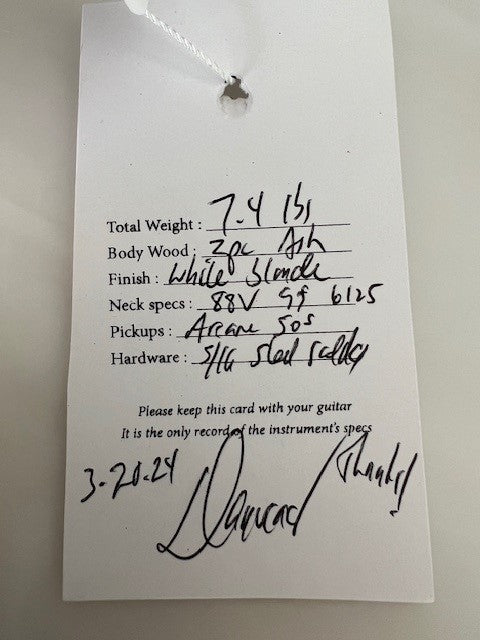 Total Weight : 7.4 lbs
Body Wood : 2pc Ash
Finish : White blonde
Neck specs : 88V 6125
Pickups : Arcane 50s
Hardware : 5/16 steel saddles
Please keep this card with your guitar
It is the only record of the instrument's specs
3-20-24
Thanks!